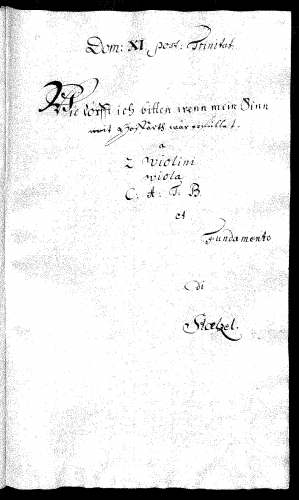 Dom: XI post. Trinitat.
Wie dörfft ich bitten wenn mein Sinn
mit Hoffarth wär erfüllet.
a
2 Violini
Viola
C. A. T. B.
et
Fundamento
di
Stœlzel.